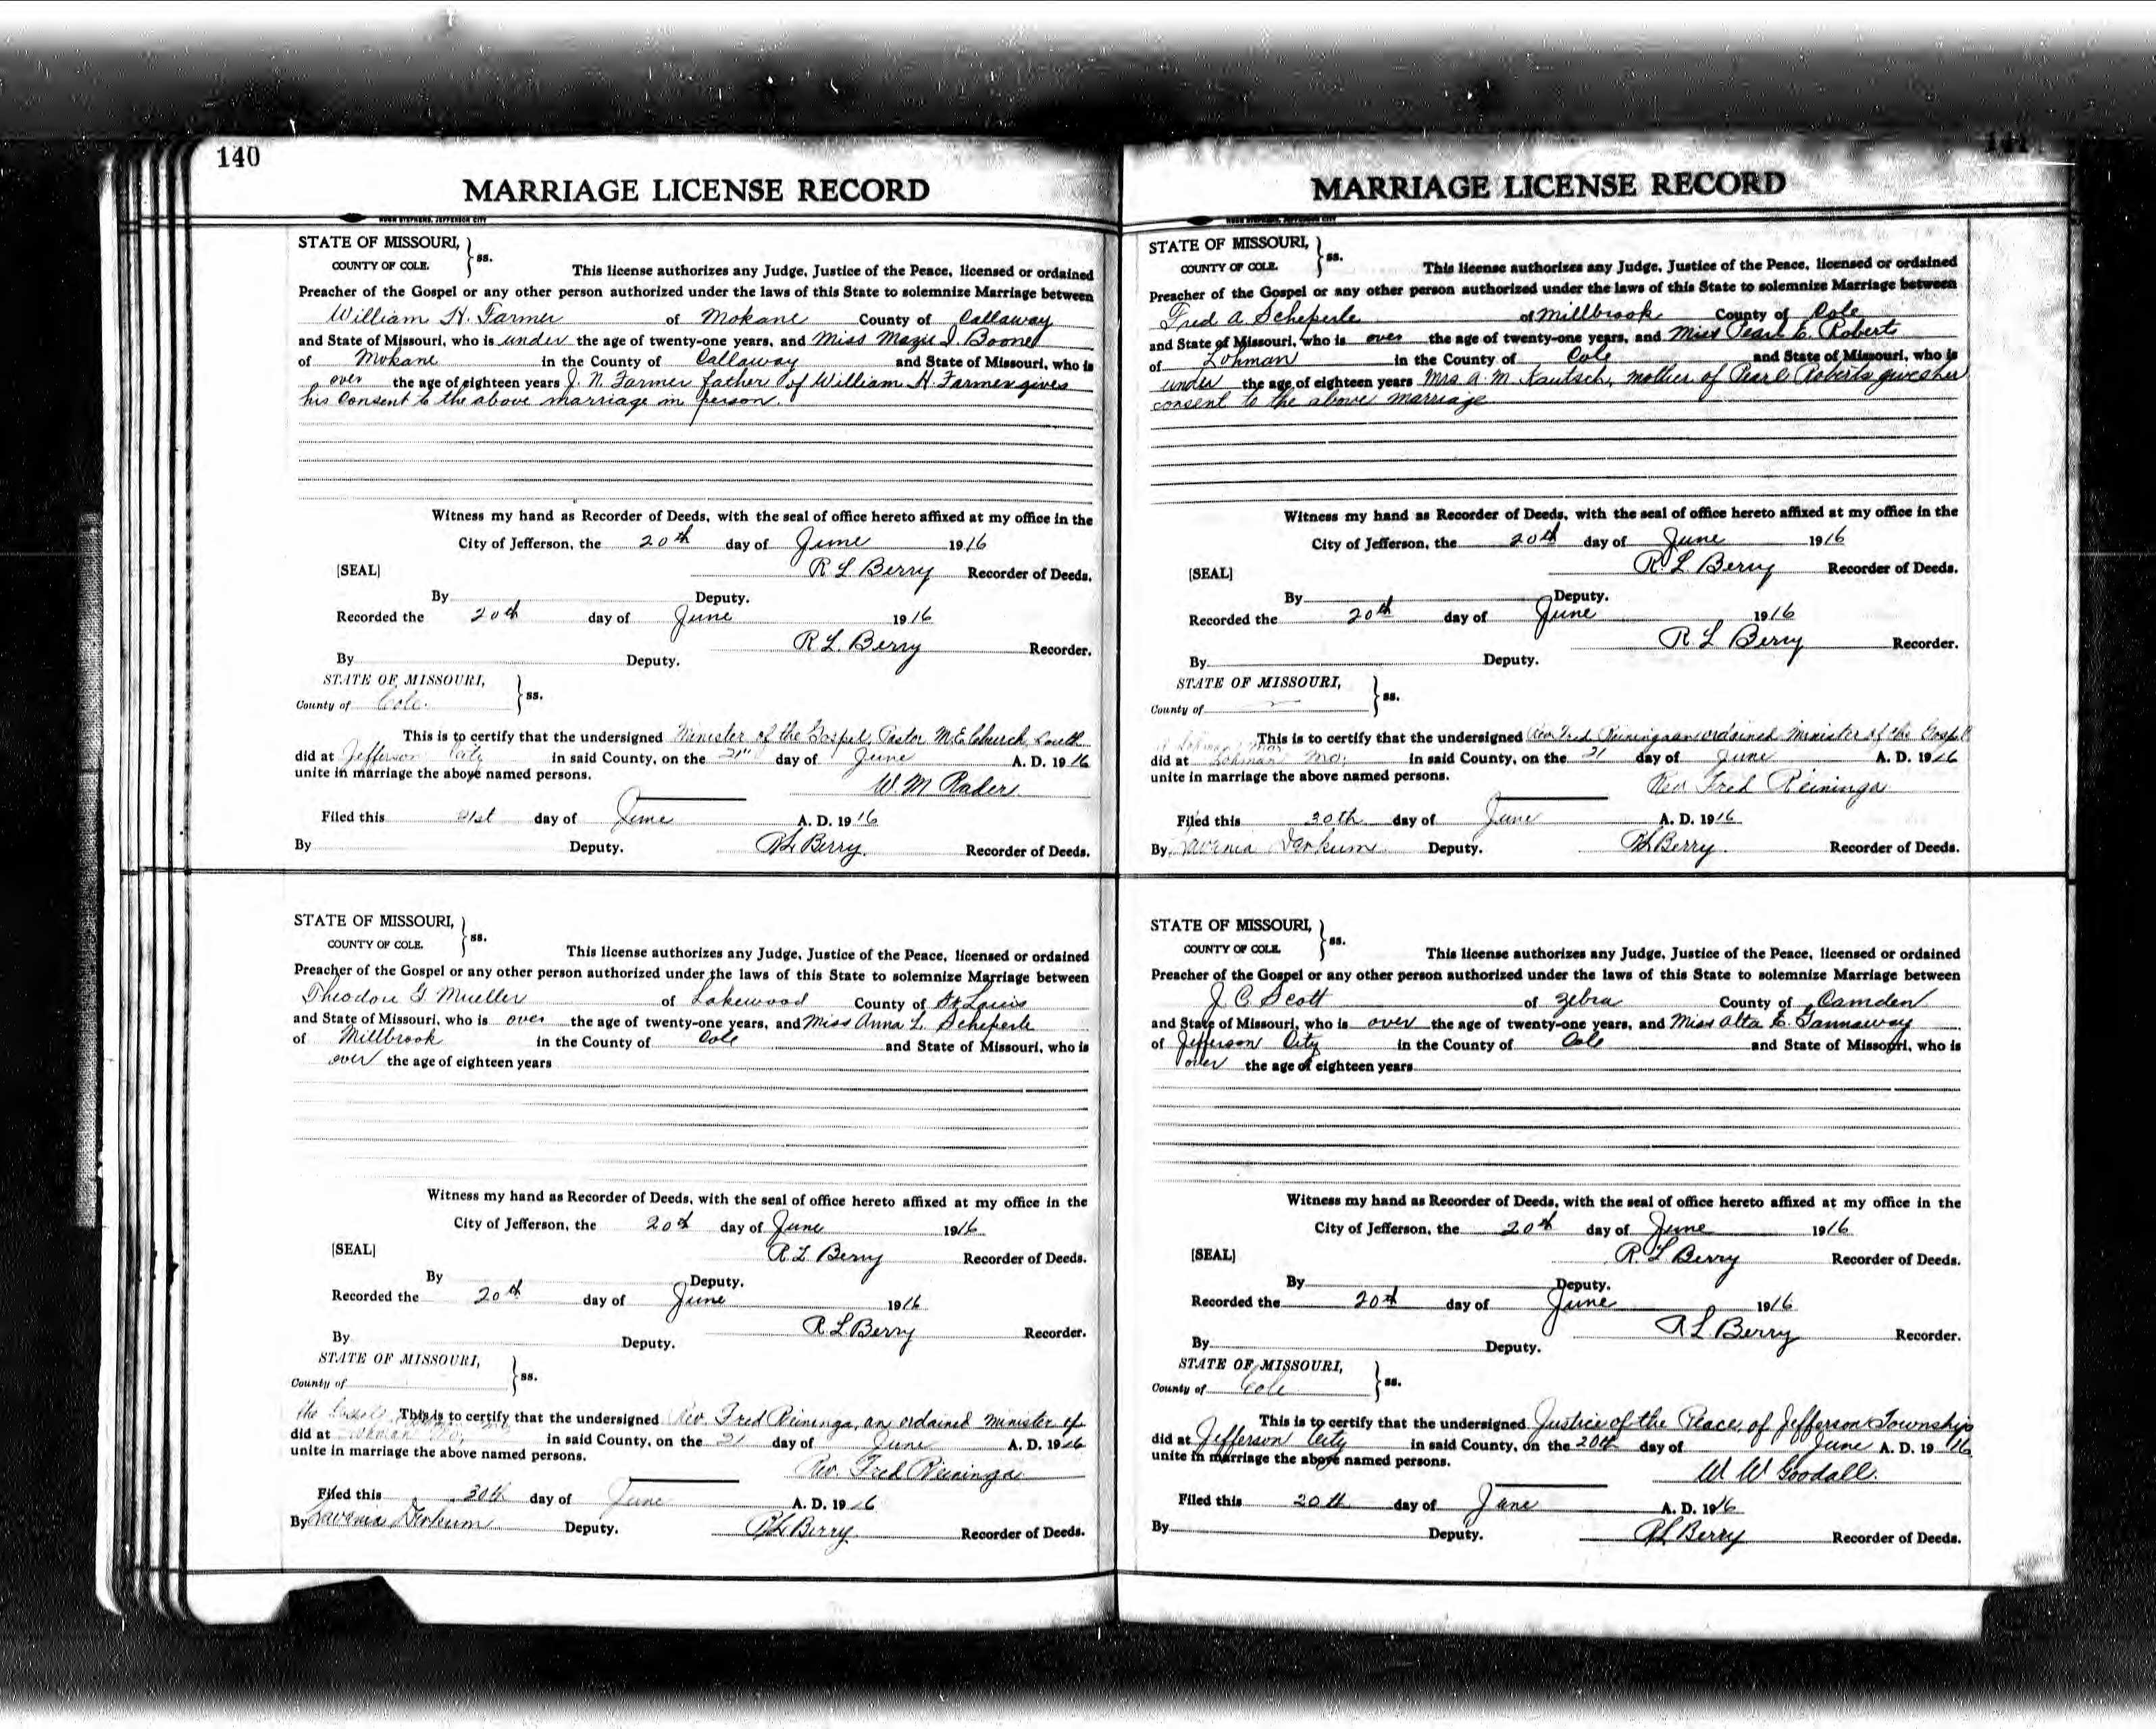 140
MARRIAGE LICENSE RECORD
HUGH STEPHENS, JEFFERSON CITY
STATE OF MISSOURI,
COUNTY OF COLE. ss.
This license authorizes any Judge, Justice of the Peace, licensed or ordained
Preacher of the Gospel or any other person authorized under the laws of this State to solemnize Marriage between
William H. Farmer of Mokane County of Callaway
and State of Missouri, who is under the age of twenty-one years, and Miss Mazie I. Boone
of Mokane in the County of Callaway and State of Missouri, who is
over the age of eighteen years J. N. Farmer father of William H Farmer gives
his Consent to the above marriage in person.
Witness my hand as Recorder of Deeds, with the seal of office hereto affixed at my office in the
City of Jefferson, the 20th day of June 1916
[SEAL] R L Berry Recorder of Deeds.
By Deputy.
Recorded the 20th day of June 1916
R L. Berry Recorder.
By Deputy.
STATE OF MISSOURI,
County of Cole. ss.
This is to certify that the undersigned Minister of the Gospel, Pastor M.E. Church, South
did at Jefferson City in said County, on the 21st day of June A. D. 1916
unite in marriage the above named persons.
W. M. Rader
Filed this 21st day of June A. D. 1916
By Deputy. R L Berry Recorder of Deeds.
STATE OF MISSOURI,
COUNTY OF COLE. ss.
This license authorizes any Judge, Justice of the Peace, licensed or ordained
Preacher of the Gospel or any other person authorized under the laws of this State to solemnize Marriage between
Theodore G Mueller of Lakewood County of St Louis
and State of Missouri, who is over the age of twenty-one years, and Miss Anna L. Scheperle
of Millbrook in the County of Cole and State of Missouri, who is
over the age of eighteen years
Witness my hand as Recorder of Deeds, with the seal of office hereto affixed at my office in the
City of Jefferson, the 20th day of June 1916
[SEAL] R L Berry Recorder of Deeds.
By Deputy.
Recorded the 20th day of June 1916
R L Berry Recorder.
By Deputy.
STATE OF MISSOURI,
County of ss.
This is to certify that the undersigned Rev. Fred Reininga, an ordained minister of
the Gospel
did at Lohman Mo, in said County, on the 21 day of June A. D. 1916
unite in marriage the above named persons.
Rev. Fred Reininga
Filed this 30th day of June A. D. 1916
By Deputy. R L Berry Recorder of Deeds.
141
MARRIAGE LICENSE RECORD
HUGH STEPHENS, JEFFERSON CITY
STATE OF MISSOURI,
COUNTY OF COLE. ss.
This license authorizes any Judge, Justice of the Peace, licensed or ordained
Preacher of the Gospel or any other person authorized under the laws of this State to solemnize Marriage between
Fred A Scheperle of Millbrook County of Cole
and State of Missouri, who is over the age of twenty-one years, and Miss Pearl E. Roberts
of Lohman in the County of Cole and State of Missouri, who is
under the age of eighteen years Mrs A. M. Kautsch, mother of Pearl Roberts gives her
consent to the above marriage
Witness my hand as Recorder of Deeds, with the seal of office hereto affixed at my office in the
City of Jefferson, the 20th day of June 1916
[SEAL] R L Berry Recorder of Deeds.
By Deputy.
Recorded the 20th day of June 1916
R L Berry Recorder.
By Deputy.
STATE OF MISSOURI,
County of ss.
This is to certify that the undersigned Rev. Fred Reininga an ordained minister of the Gospel
did at Lohman Mo, in said County, on the 21 day of June A. D. 1916
unite in marriage the above named persons.
Rev Fred Reininga
Filed this 30th day of June A. D. 1916
By Deputy. R L Berry Recorder of Deeds.
STATE OF MISSOURI,
COUNTY OF COLE. ss.
This license authorizes any Judge, Justice of the Peace, licensed or ordained
Preacher of the Gospel or any other person authorized under the laws of this State to solemnize Marriage between
J C Scott of Zebra County of Camden
and State of Missouri, who is over the age of twenty-one years, and Miss Alta E. Gannaway
of Jefferson City in the County of Cole and State of Missouri, who is
over the age of eighteen years
Witness my hand as Recorder of Deeds, with the seal of office hereto affixed at my office in the
City of Jefferson, the 20th day of June 1916
[SEAL] R. L Berry Recorder of Deeds.
By Deputy.
Recorded the 20th day of June 1916
R L Berry Recorder.
By Deputy.
STATE OF MISSOURI,
County of Cole ss.
This is to certify that the undersigned Justice of the Peace, of Jefferson Township
did at Jefferson City in said County, on the 20th day of June A. D. 1916
unite in marriage the above named persons.
W W Goodall.
Filed this 20th day of June A. D. 1916
By Deputy. R L Berry Recorder of Deeds.